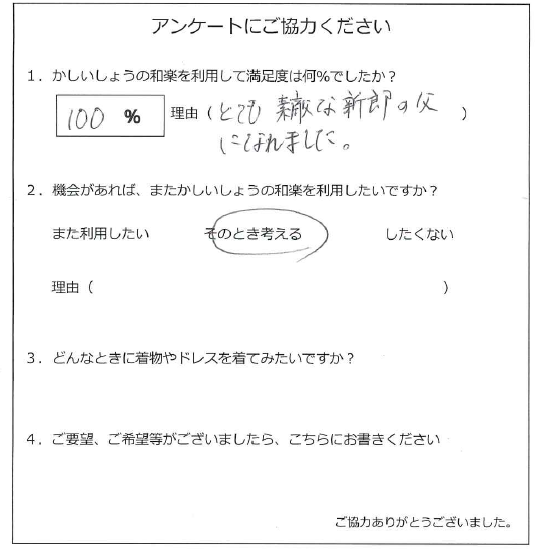 アンケートにご協力ください
1．かしいしょうの和楽を利用して満足度は何%でしたか？
100 % 理由（とても 素敵な新郎の父
になれました。）
2．機会があれば、またかしいしょうの和楽を利用したいですか？
また利用したい そのとき考える したくない
理由（ ）
3．どんなときに着物やドレスを着てみたいですか？
4．ご要望、ご希望等がございましたら、こちらにお書きください
ご協力ありがとうございました。